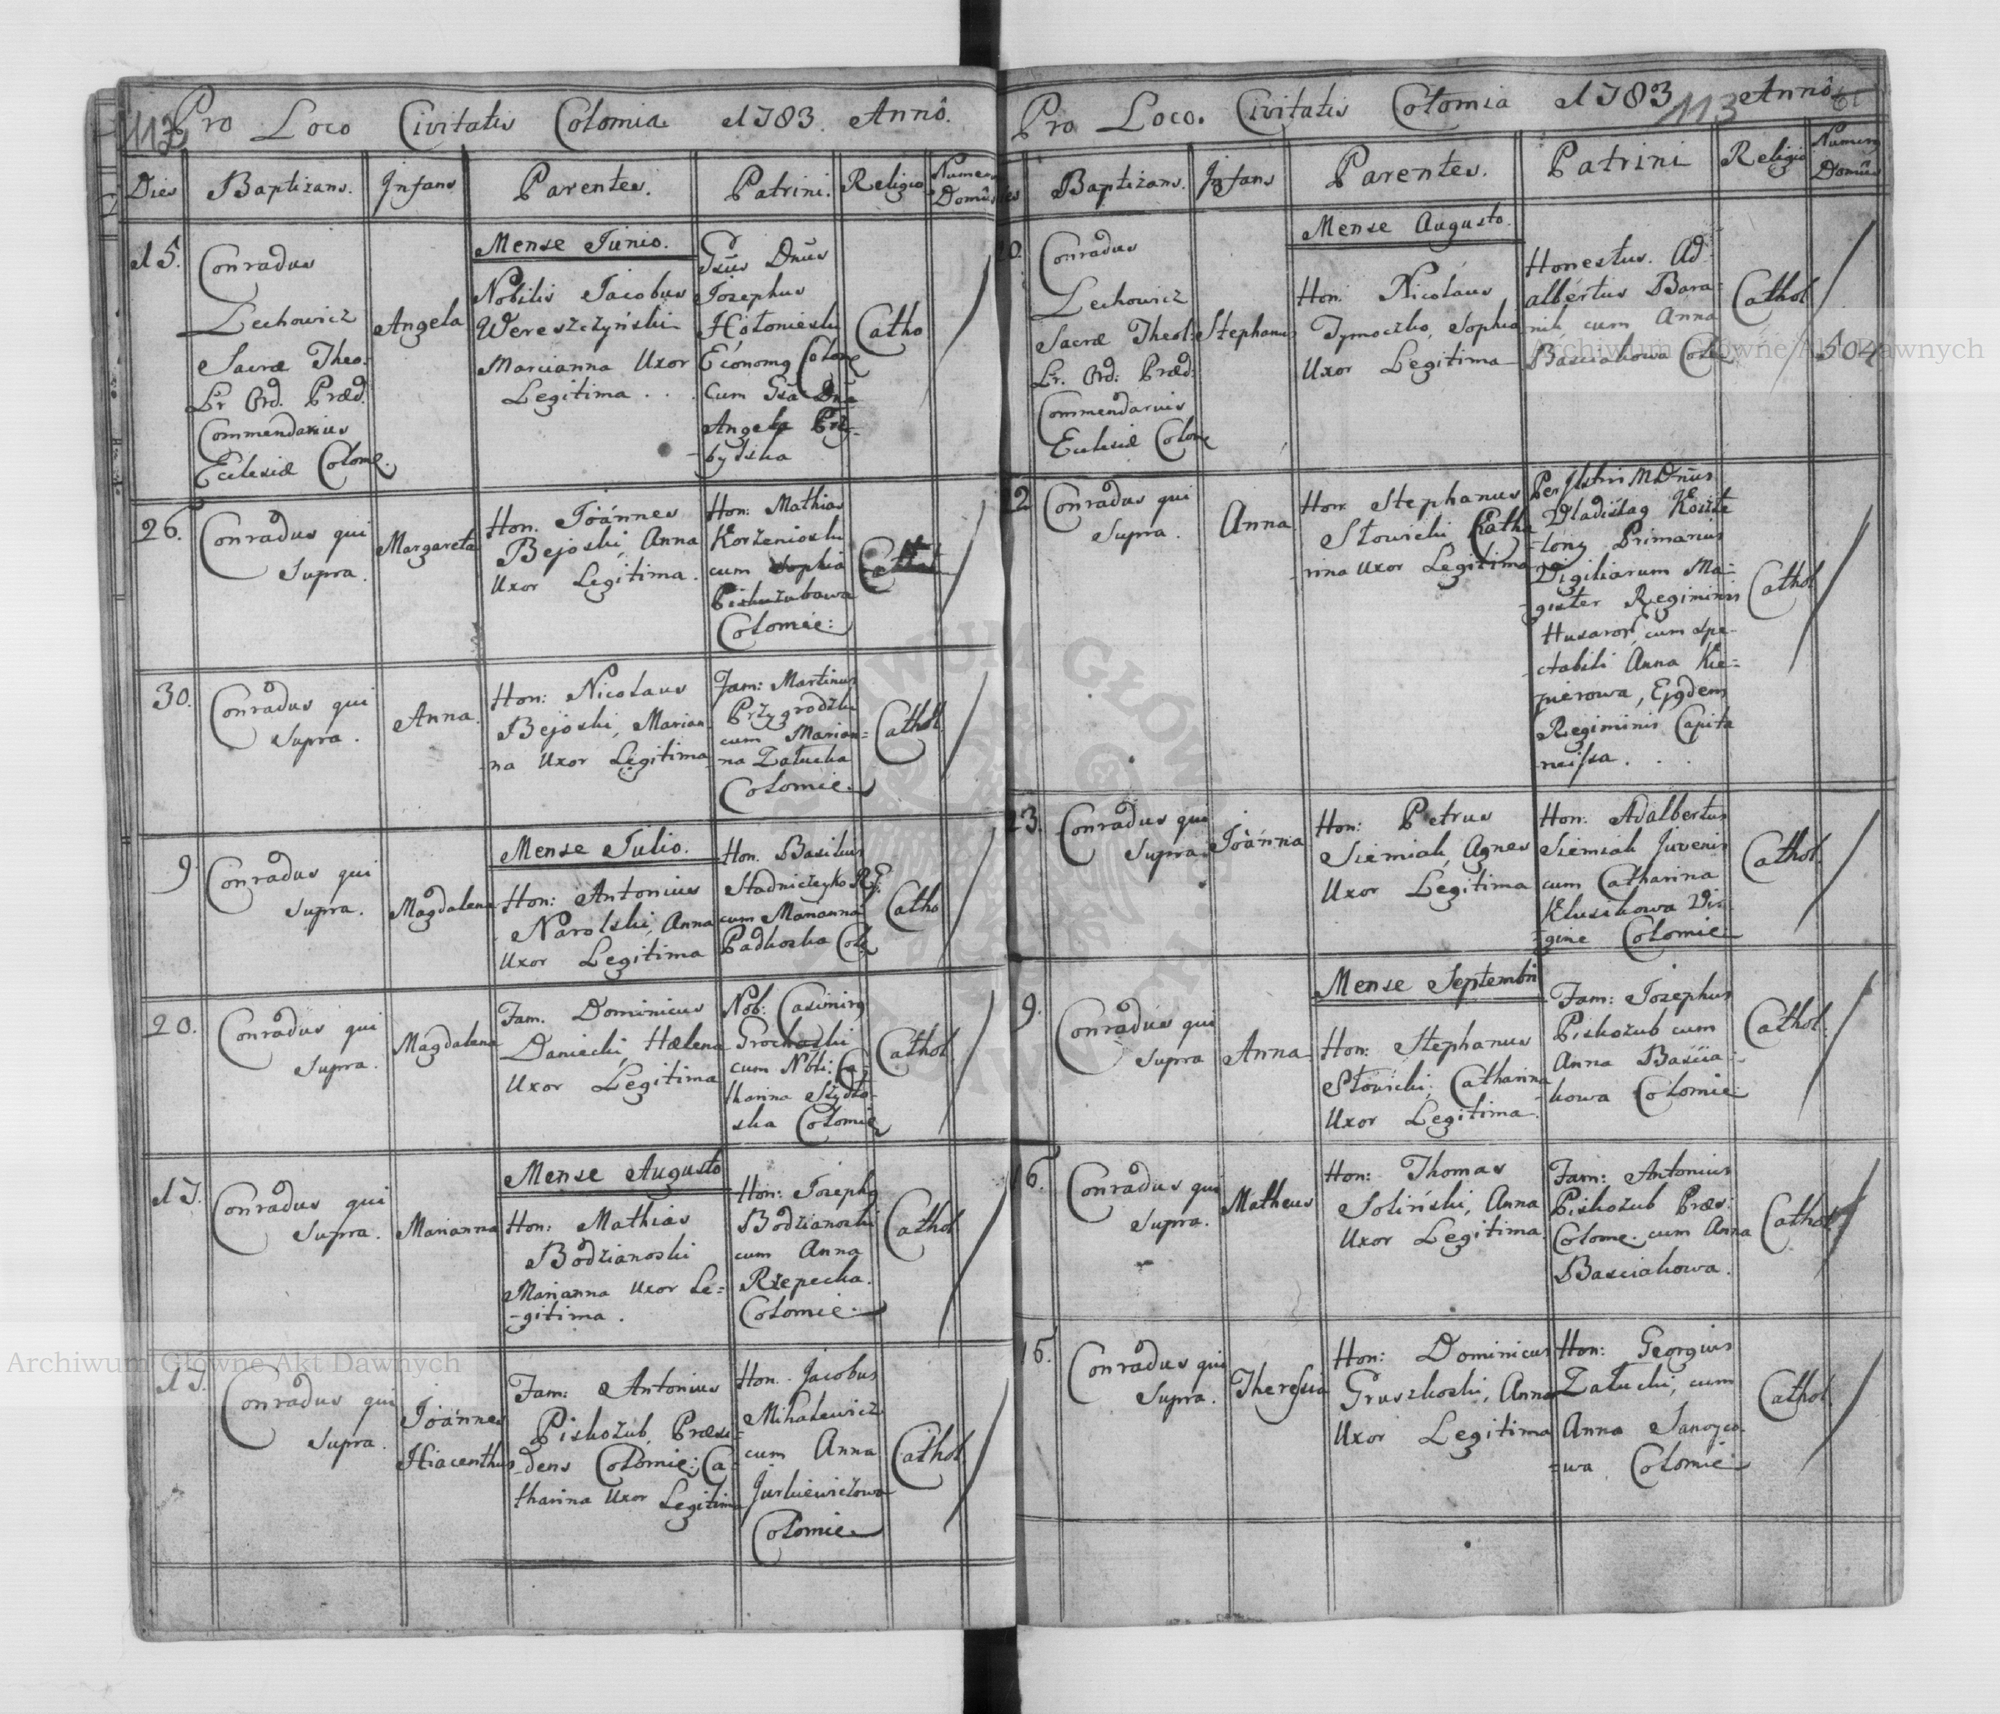 113
Pro Loco Civitatis Colomia 1783. Annô.
Dies
Baptizans.
Infans
Parentes.
Patrini.
Religio
Numerus
Domûs
Mense Junio.
15.
Conradus
Lechowicz
Sacræ Theo:
Lr Ord. Præd.
Commendarius
Ecclesiæ Colome.
Angela
Nobilis Jacobus
Wereszczyński
Marcianna Uxor
Legitima . . .
Gsus Dnus
Josephus
Hołonieski
Economg Colome
cum Gsa Dna
Angela Prży-
bylska
Catho
26.
Conradus qui
Supra.
Margareta
Hon. Joánnes
Bejoski, Anna
Uxor Legitima.
Hon: Mathias
Korżenioski
cum Sophia
Piskożubowa
Colomie:
30.
Conradus qui
Supra.
Anna.
Hon: Nicolaus
Bejoski, Marian
-na Uxor Legitima
Fam: Martinus
Prżygrodżki
cum Marian=
-na Załucka
Colomie.
Cathol.
Mense Julio.
9.
Conradus qui
Supra.
Magdalena
Hon: Antonius
Narolski, Anna
Uxor Legitima
Hon. Basilius
Stadniczyko
cum Marianna
Padkoska Cole
Catho
20.
Conradus qui
Supra.
Magdalena
Fam. Dominicus
Daniecki, Hælena
Uxor Legitima
Nob: Casimirg
Grochoski
cum Nbli: Ca-
tharina Szydło-
ska Colomie
Cathol.
Mense Augusto
17.
Conradus qui
Supra.
Marianna
Hon: Mathias
Bodżianoski
Marianna Uxor Le=
-gitima.
Hon: Josephg
Bodżianoski
cum Anna
Rżepecka.
Colomie.
Cathol.
17.
Conradus qui
Supra.
Joánnes
Hiacenthus
Fam: Antonius
Piskożub, Præsi=
-dens Colomie; Ca-
tharina Uxor Legitima
Hon. Jacobus
Mihalewicz
cum Anna
Jurkiewiczowa
Colomie
Cathol.
Pro Loco. Civitatis Colomia 1783 Annô.
113
Baptizans.
Infans
Parentes.
Patrini
Religio
Numerus
Domûs
Mense Augusto.
20.
Conradus
Lechowicz
Sacræ Theol:
Lr. Ord: Præd:
Commendarius
Ecclesiæ Colome
Stephanus
Hon: Nicolaus
Tymoczko, Sophia
Uxor Legitima
Honestus. Ad-
albertus Bara-
nik, cum Anna
Basciakowa Cole
Cathol
104
22.
Conradus qui
Supra.
Anna
Hon: Stephanus
Słowicki, Catha
-rina Uxor Legitima
Per Jlstris MDnus
Vladislag Kossta
-lony Primarius
Vigiliarum Ma-
-gister Regiminis
Husaror, cum spe-
-ctabili Anna Kie=
-znierowa, Ejgdem
Regiminis Capita
-neissa . . .
Cathol.
23.
Conradus qui
Supra.
Joánna
Hon: Petrus
Siemiak, Agnes
Uxor Legitima
Hon: Adalbertus
Siemiak Juvenis
cum Catharina
Klusikowa Vir-
-gine Colomie.
Cathol.
Mense Septembri
9.
Conradus qui
Supra
Anna
Hon: Stephanus
Słowicki; Catharina
Uxor Legitima.
Fam: Josephus
Piskożub cum
Anna Bascia-
kowa Colomie
Cathol.
16.
Conradus qui
Supra.
Matheus
Hon: Thomas
Soliński, Anna
Uxor Legitima.
Fam: Antonius
Piskożub Præs:
Colome. cum Anna
Basciakowa.
Cathol.
16.
Conradus qui
Supra.
Theresia
Hon: Dominicus
Gruszkoski, Anna
Uxor Legitima
Hon: Georgius
Załucki, cum
Anna Janoyco
=wa Colomie
Cathol.
Archiwum Główne Akt Dawnych
Archiwum Główne Akt Dawnych